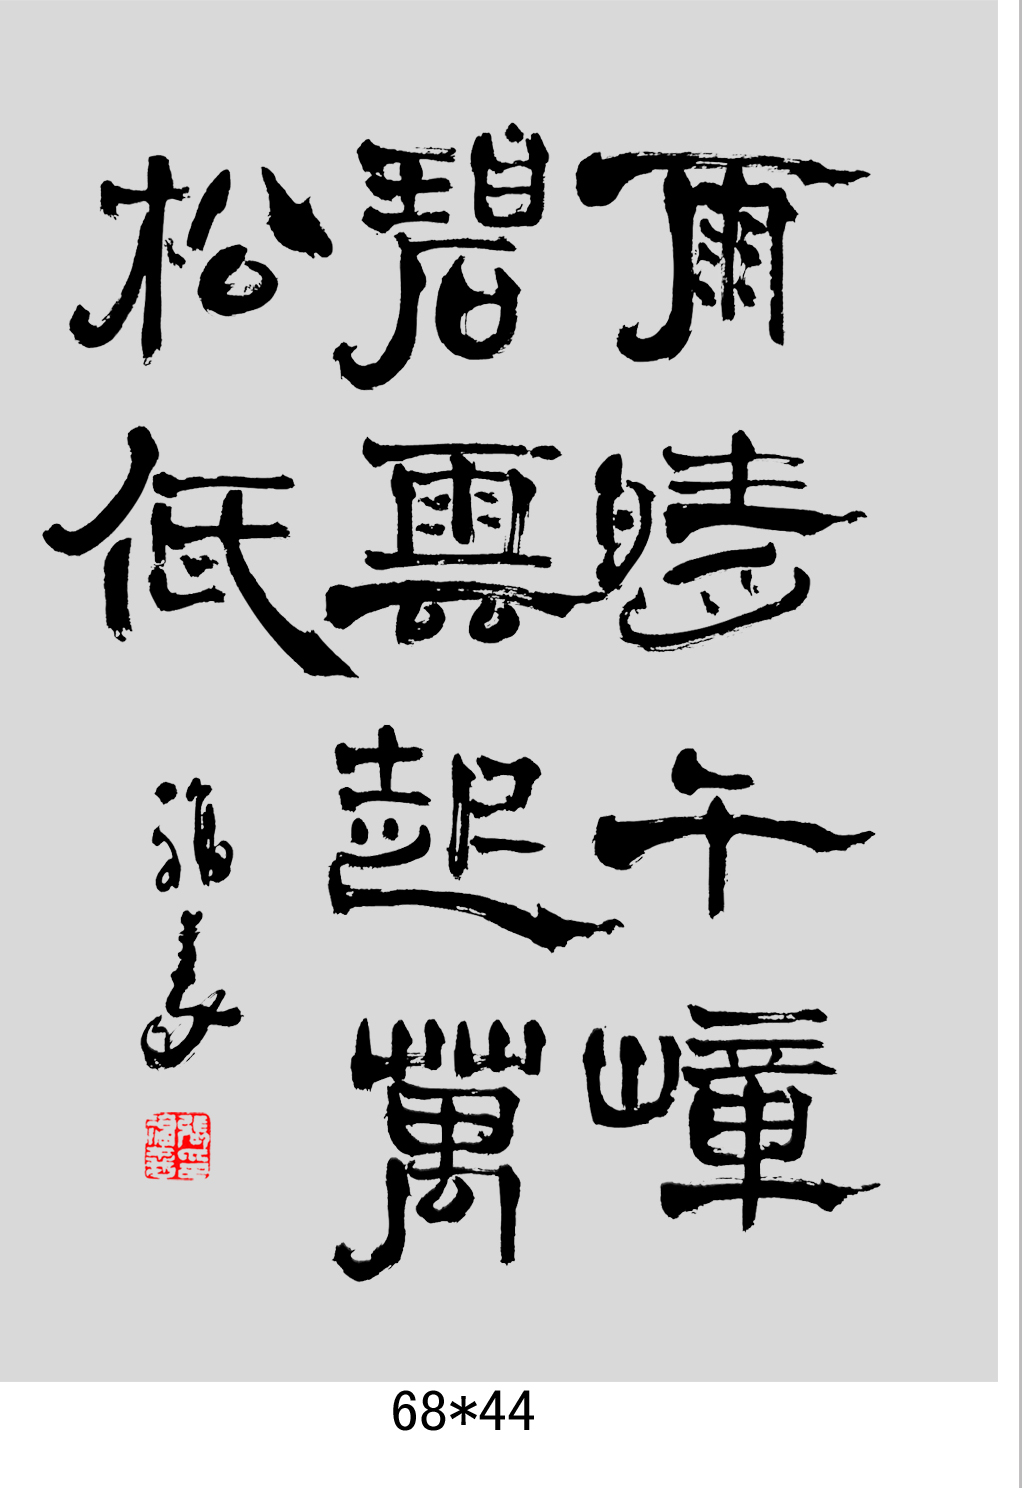 雨晴千嶂
碧雲起萬
松低
福義
68*44